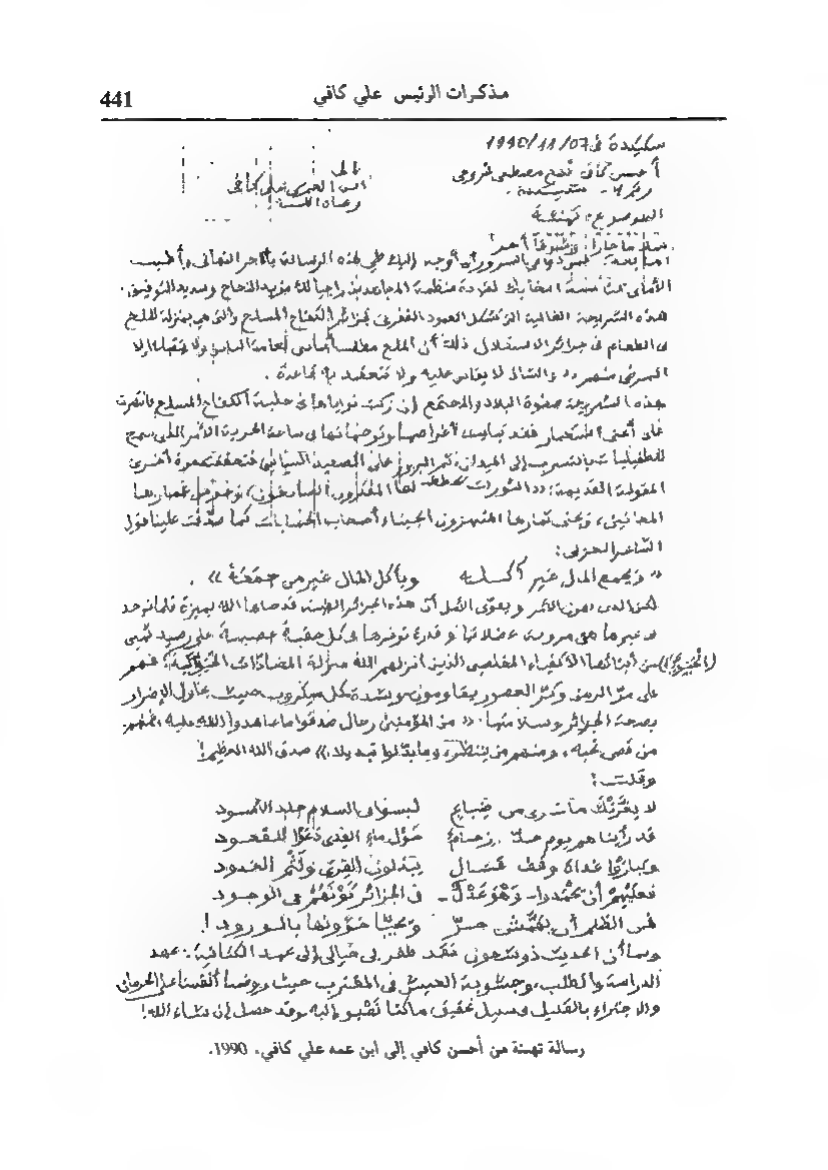 مذكرات الرئيس علي كافي
441
سكيكدة في 1990/11/07
أحسن كافي نهج مصطفى
إلى
ابن العم علي كافي
الموضوع: تهنئة
أما بعد: أوجه إليك طي هذه الرسالة بأحر التهاني وأطيب
الأماني بمناسبة لقيادة منظمة المجاهدين راجيا لك مزيد النجاح وسديد التوفيق.
هذه الشريحة الغالية التي تشكل العمود الفقري لجزائر الكفاح المسلح والتي هي بمنزلة الملح
في الطعام في جزائر الاستقلال ذلك أن الملح مطلب أساسي لعامة الناس ولا إلا
المرضى منهم «والشاذ لا يقاس عليه ولا تنعقد به قاعدة».
هذه الشريحة صفوة البلاد والمجتمع إن زكت نواياها في حلبة الكفاح المسلح فانتصرت
على استعمار فقد في ساعة الحرية الأمر الذي سمح
للطفيليات بالتسرب إلى الميدان، ثم البروز على الصعيد السياسي فتحققت مرة أخرى
المقولة القديمة: «الثورات يخطط لها المفكرون ويخوض غمارها
المجانين، ويجني ثمارها المنتهزون الجبناء أصحاب الحسابات كما صدقت علينا قول
الشاعر العربي:
«ويجمع المال غير آكله ويأكل المال غير من جمعه».
لكن الذي يهون الأمر ويقوي الأمل أن هذه الجزائر قد حباها الله بميزة قلما توجد
في غيرها هي مرونة عضلاتها وقدرة توفرها في كل حقبة عصيبة على رصيد
(الجنود) من أبنائها الأكفياء المخلصين الذين أنزلهم الله منزلة المضادات الحيوية؛ فهم
على مر الزمن وكر العصور يقاومون بشدة كل ميكروب خبيث يحاول الإضرار
بصحة الجزائر وسلامتها «من المؤمنين رجال صدقوا ما عاهدوا الله عليه فمنهم
من قضى نحبه، ومنهم من ينتظر، وما بدلوا تبديلا» صدق الله العظيم!
وقلت:
لا يغرنك ما ترى من ضباع لبسوا في السلام جلد الأسود
قد رأيناهم يوم حول ماء دعوا للقعود
غداة وقف يبذلون القرى ولثم الخدود
فعليهم أن يحمدوا وهو عدل في الجزائر كونهم في الوجود
فمن الظلم أن يهمش حر بالورود!
وبما أن الحديث ذو شجون فقد ظفر بي خيالي إلى عهد الكتانية: عهد
الدراسة والطلب، وخشونة العيش في المغترب حيث روضنا أنفسنا على الحرمان
والاجتزاء بالقليل في سبيل تحقيق ما كنا نصبو إليه وقد حصل إن شاء الله!
رسالة تهنئة من أحسن كافي إلى ابن عمه علي كافي، 1990.